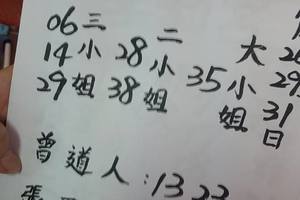 06 三 二
14 小 28 小 大
29 姐 38 姐 35 小 29
姐 31
日
曾道人:13 23
張